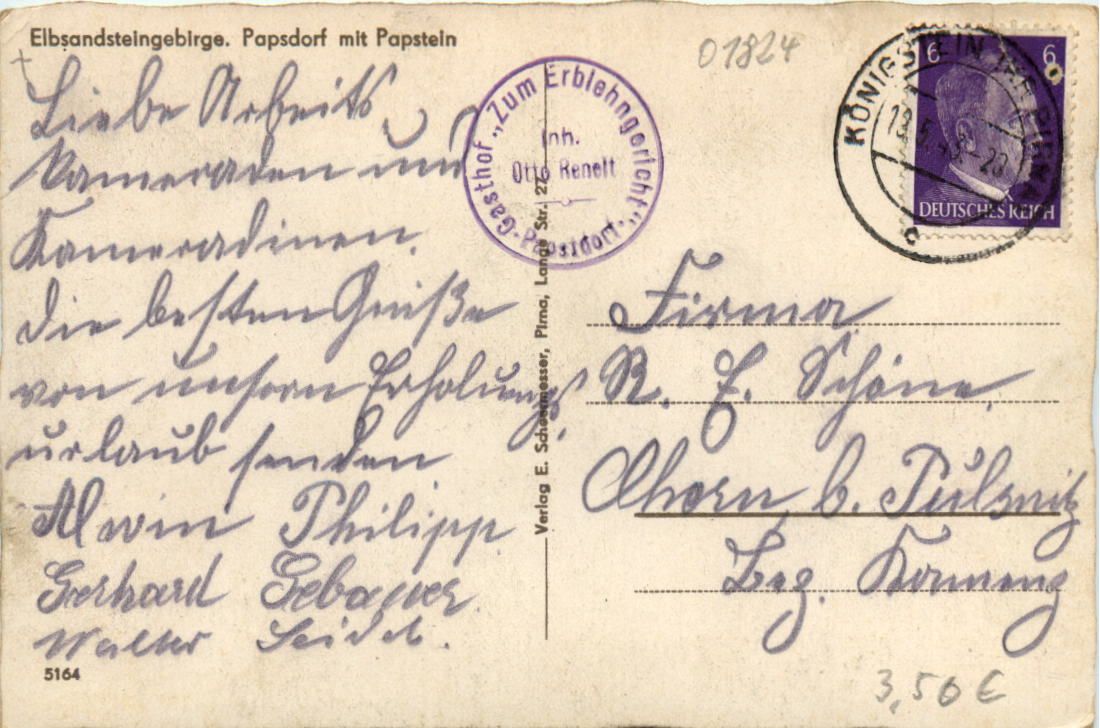 Elbsandsteingebirge. Papsdorf mit Papstein
01824
Liebe Arbeits
kameraden und
Kameradinen.
Die besten Grüße
von unsern Erholungs
urlaub senden
Alwin Philipp.
Gerhard Gebauer.
Walter Seidel.
5164
Gasthof „Zum Erblehngericht“
Inh.
Otto Renelt
Papstdorf
Verlag E. Schoenmesser, Pirna, Lange Str. 27
KÖNIGSTEIN PIRNA
c
6 6
DEUTSCHES REICH
Firma
R. E. Schöne.
Ohorn b. Pulsnitz
Bez. Kamenz
3,50 €